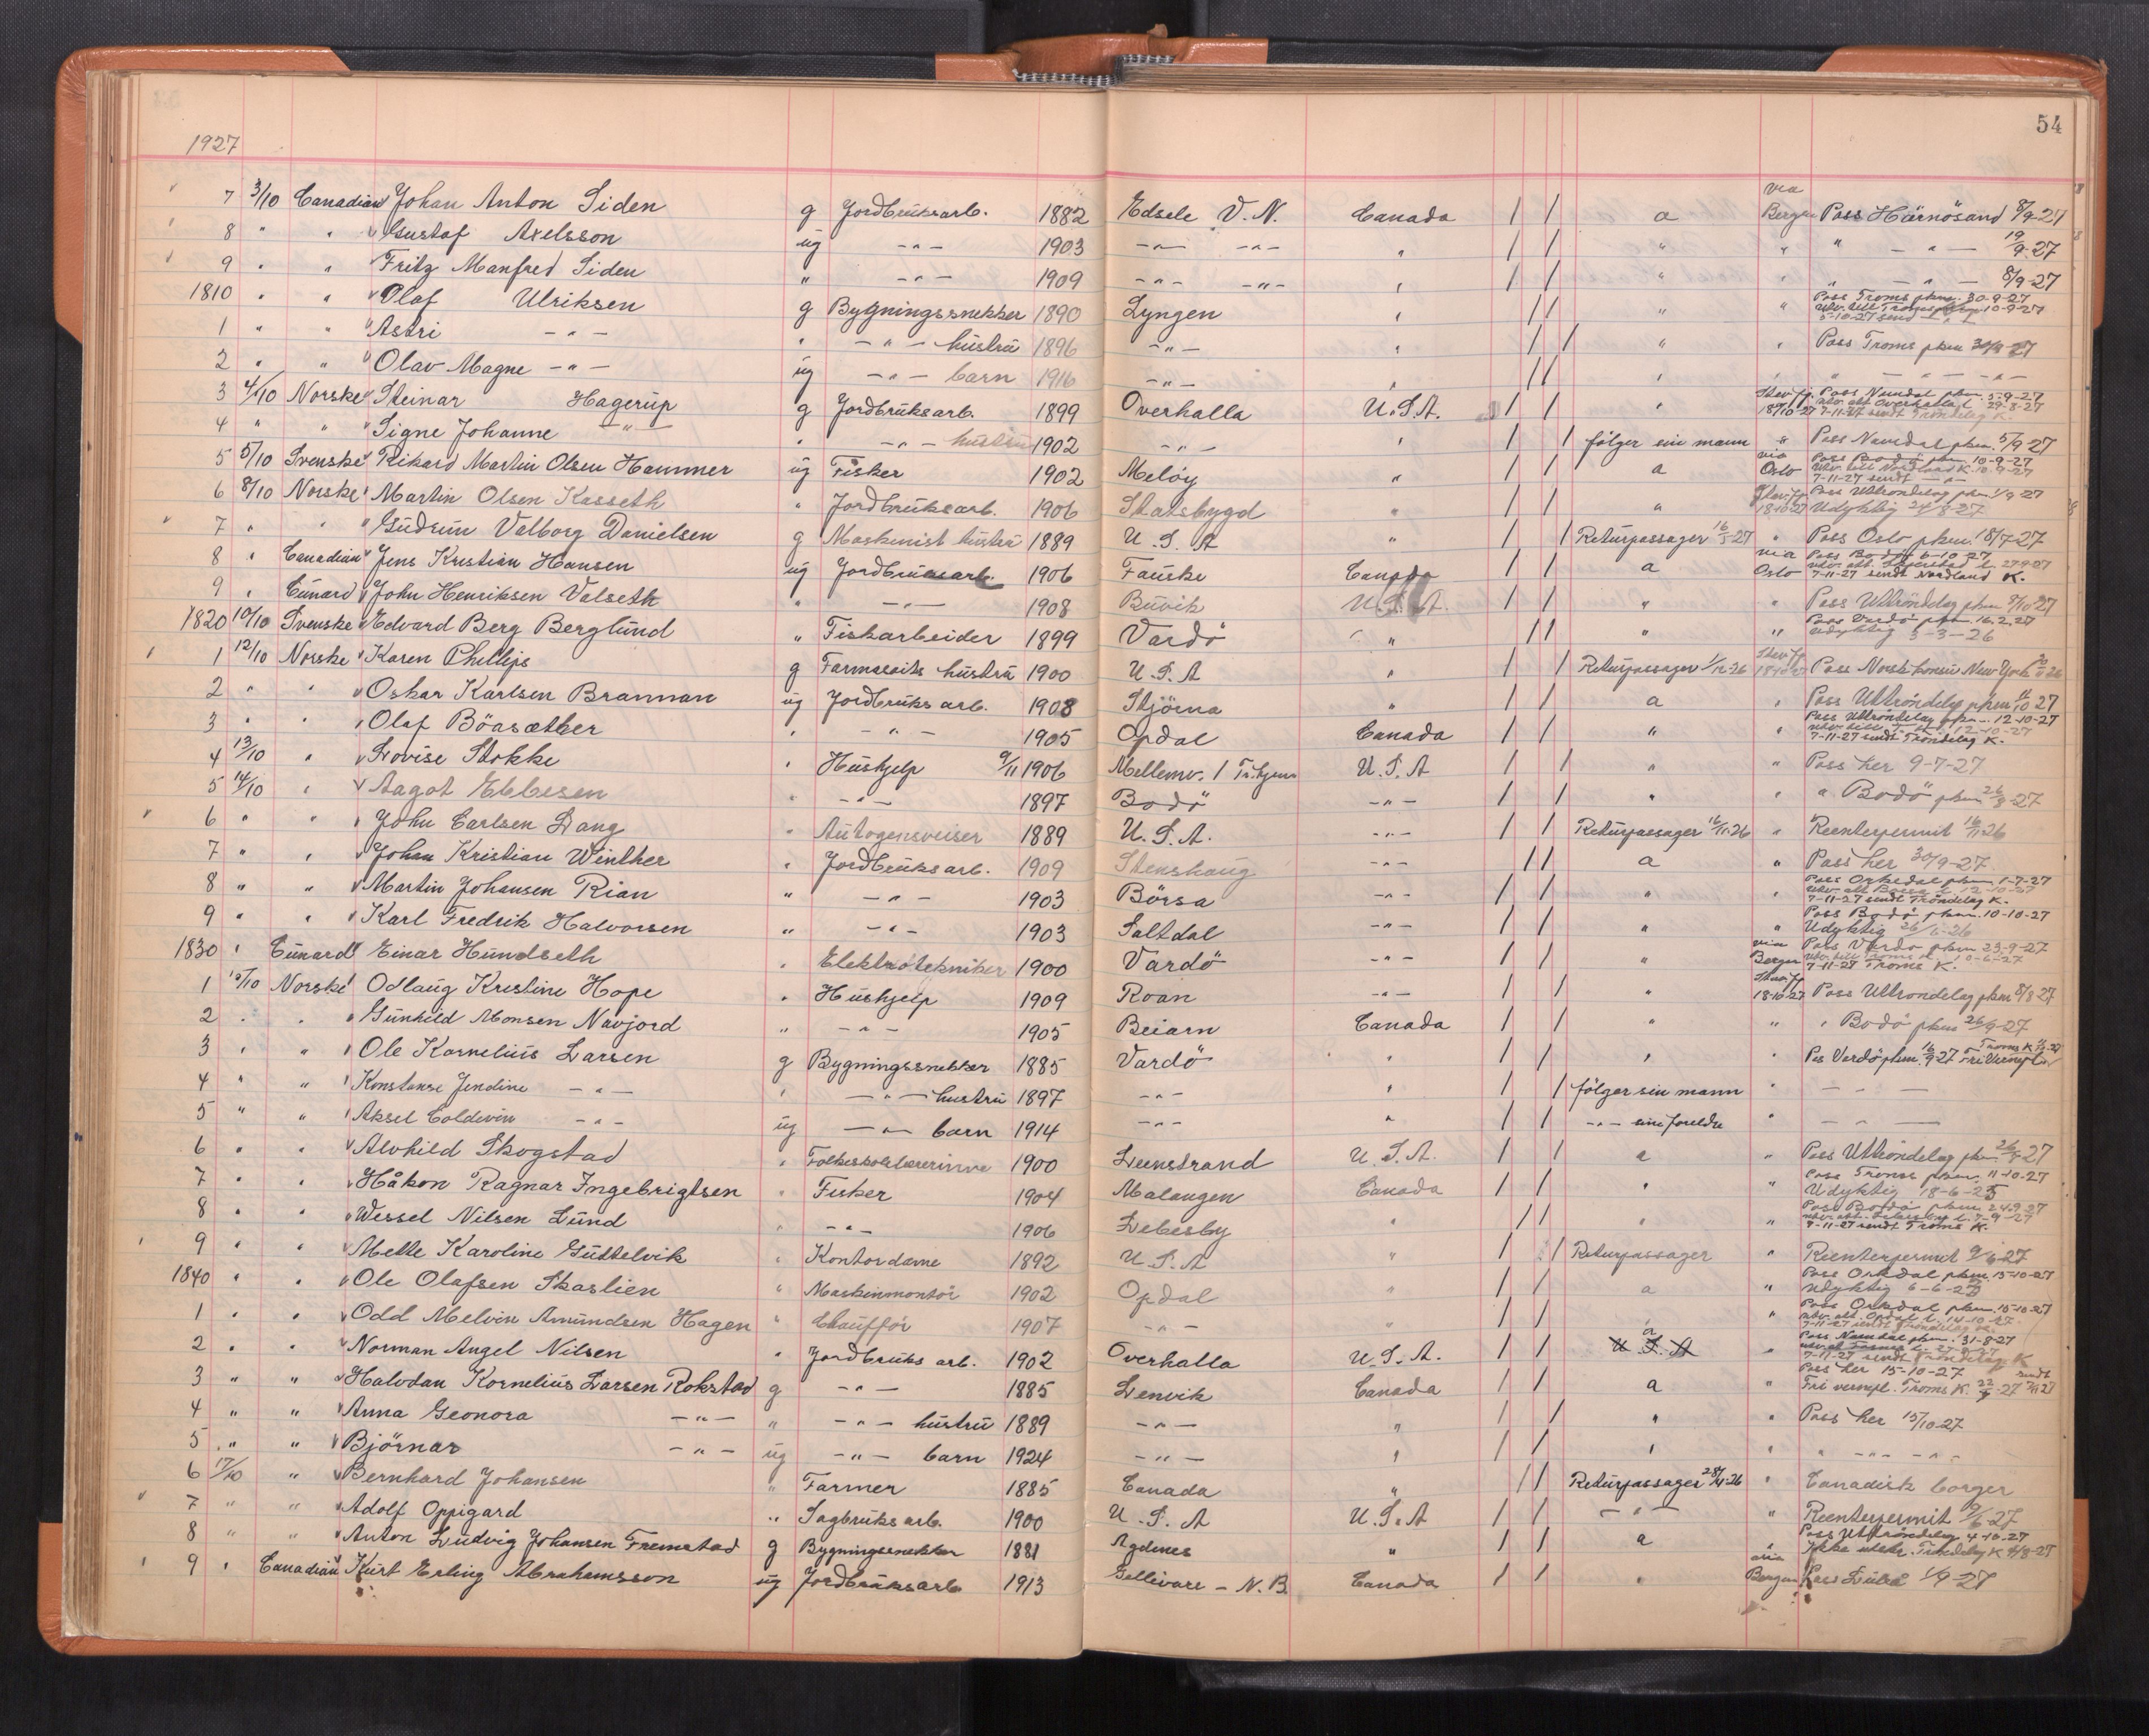 54
1927
7 3/10 Canadian Johan Anton Siden g Jordbruksarb. 1882 Edsele V.N. Canada / / a via Bergen Pass Härnösand 8/9-27
8 " " Gustaf Axelsson ug -"- 1903 -"- -"- " / / " " " -"- 19/9-27
9 " " Fritz Manfred Siden " -"- 1909 -"- -"- " / / " " " -"- 8/9-27
1810 " " Olaf Ulriksen g Bygningssnekker 1890 Lyngen " / / " " Pass Troms pkm. 30-9-27 5-10-27 send
1 " " Astri -"- " -"- hustru 1896 -"- " / / " " Pass Troms pkm 30/9 27
2 " " Olav Magne -"- ug -"- barn 1916 -"- " / / " " " -"- -"-
3 4/10 Norske Steinar Hagerup g Jordbruksarb. 1899 Overhalla U.S.A. / / " 18/10-27 Pass Namdal pkm 5-9-27 7-11-27 sendt Trøndelag K.
4 " " Signe Johanne -"- " -"- hustru 1902 -"- " / / følger sin mann " Pass Namdal pkm. 5/9-27
5 5/10 Svenske Rikard Martin Olsen Hammer ug Fisker 1902 Meløy " / / a via Oslo Pass Bodø pkm 10-9-27 7-11-27 sendt -"-
6 8/10 Norske Martin Olsen Kasseth " Jordbruksarb. 1906 Stadsbygd " / / " 18-10-27 Pass Uttrøndelag pkm 1/9 27 Udyktig 24/8-27
7 " " Gudrun Valborg Danielsen g Maskinist hustru 1889 U.S.A " / / Returpassager 16/5-27 " Pass Oslo pkm. 18/7-27
8 " Canadian Jens Kristian Hansen ug Jordbruksarb. 1906 Fauske Canada / / a via Oslo Pass Bodø 6-10-27 7-11-27 sendt Nordland K.
9 " Cunard John Henriksen Valseth " -"- 1908 Buvik U.S.A. / / " " Pass Uttrøndelag pkm 9/10 27
1820 10/10 Svenske Edvard Berg Berglund " Fiskarbeider 1899 Vardø " / / " " Pass Vardø pkm 16.2.27 Udyktig 5-3-26
1 12/10 Norske Karen Phillips g Farmaceits hustru 1900 U.S.A " / / Returpassager 1/12-26 Pass Norsk konsu New York
2 " " Oskar Karlsen Brannan ug Jordbruks arb. 1908 Stjørna " / / a " Pass Uttrøndelag pkm 11/10 27
3 " " Olaf Böasæther " -"- 1905 Opdal Canada / / " " Pass Uttrøndelag pkm 12-10-27 7-11-27 sendt Trøndelag K.
4 13/10 " Lovise Stokke " Hushjelp 9/11 1906 Mellemv. 1 Tr.hjem U.S.A / / " " Pass her 9-7-27
5 14/10 " Aagot Ebbesen " -"- 1897 Bodø -"- / / " " " Bodø pkm 26/8-27
6 " " John Carlsen Lang " Autogensveiser 1889 U.S.A. -"- / / Returpassager 16/11-26 " Reenterpermit 16/11-26
7 " " Johan Kristian Winther " Jordbruksarb. 1909 Stenshaug -"- / / a " Pass her 30/9-27
8 " " Martin Johansen Rian " -"- 1903 Börsa -"- / / " " Pass Orkedal pkm 1-7-27 7-11-27 sendt Trøndelag K.
9 " " Karl Fredrik Halvorsen " -"- 1903 Saltdal -"- / / " " Pass Bodø pkm. 10-10-27 Udyktig 26/6-26
1830 " Cunard Einar Hundseth " Elektrotekniker 1900 Vardø -"- / / " via Bergen Pass Vardø pkm 23-9-27 7-11-27 Troms K.
1 15/10 Norske Odlaug Kristine Hope " Hushjelp 1909 Roan -"- / / " 18-10-27 Pass Uttrøndelag pkm 8/8 27
2 " " Gunhild Monsen Navjord " -"- 1905 Beiarn Canada / / " " " Bodø pkm 26/9-27
3 " " Ole Kornelius Larsen g Bygningssnekker 1885 Vardø " / / " " Pas Vardø pkm. 16/9 27
4 " " Konstanse Jendine -"- " -"- hustru 1897 -"- " / / følger sin mann " — — —
5 " " Aksel Coldevin -"- ug -"- barn 1914 -"- " / / -"- sine foreldre " — " —
6 " " Alvhild Skogstad " Folkeskolelærerinne 1900 Leenstrand U.S.A. / / a " Pass Uttrøndelag pkm 26/8-27
7 " " Håkon Ragnar Ingebrigtsen " Fisker 1904 Malangen Canada / / " " Pass Troms pkm. 11-10-27 Udyktig 18-6-25
8 " " Wessel Nilsen Lund " -"- 1906 Lebesby " / / " " Pass Bodø pkm 24.9.27 7-11-27 sendt Troms K.
9 " " Mette Karoline Guttelvik " Kontordame 1892 U.S.A " / / Returpassager " Reenterpermit 9/6-27
1840 " " Ole Olafsen Skaslien " Maskinmontør 1902 Opdal " / / a " Pass Orkdal pkm. 15-10-27 Udyktig 6-6-25
1 " " Odd Melvin Amundsen Hagen " Chauffør 1907 -"- " / / " Pass Orkedal pkm. 15-10-27 7-11-27 sendt Trøndelag K.
2 " " Norman Angel Nilsen " Jordbruks arb. 1902 Overhalla U.S.A. / / a U S A " Pass Namdal pkm. 31-8-27 7-11-27 sendt Trøndelag K
3 " " Halvdan Kornelius Larsen Rokstad g -"- 1885 Lenvik Canada / / a " Pass her 15-10-27 Fri vernpl. Troms K. 22/9-27 sendt 7/11 27
4 " " Anna Geonora -"- " -"- hustru 1889 -"- " / / " " Pass her 15/10-27
5 " " Björnar -"- ug -"- barn 1924 -"- " / / " " " -"- -"-
6 17/10 " Bernhard Johansen " Farmer 1885 Canada " / / Returpassager 28/11-26 " Canadisk borger
7 " " Adolf Oppigard " Sagbruks arb. 1900 U.S.A U.S.A / / -"- " Reenterpermit 9/6-27
8 " " Anton Ludvig Johansen Fremstad g Bygningssnekker 1881 Agdenes " / / a " Pass Uttrøndelag 4-10-27 Ikke utskr. Trøndelag K
9 " Canadian Kurt Erling Abrahamsson ug Jordbruksarb 1913 Gellivare - N.B. Canada / / " via Bergen Pass Luleå 1/9-27